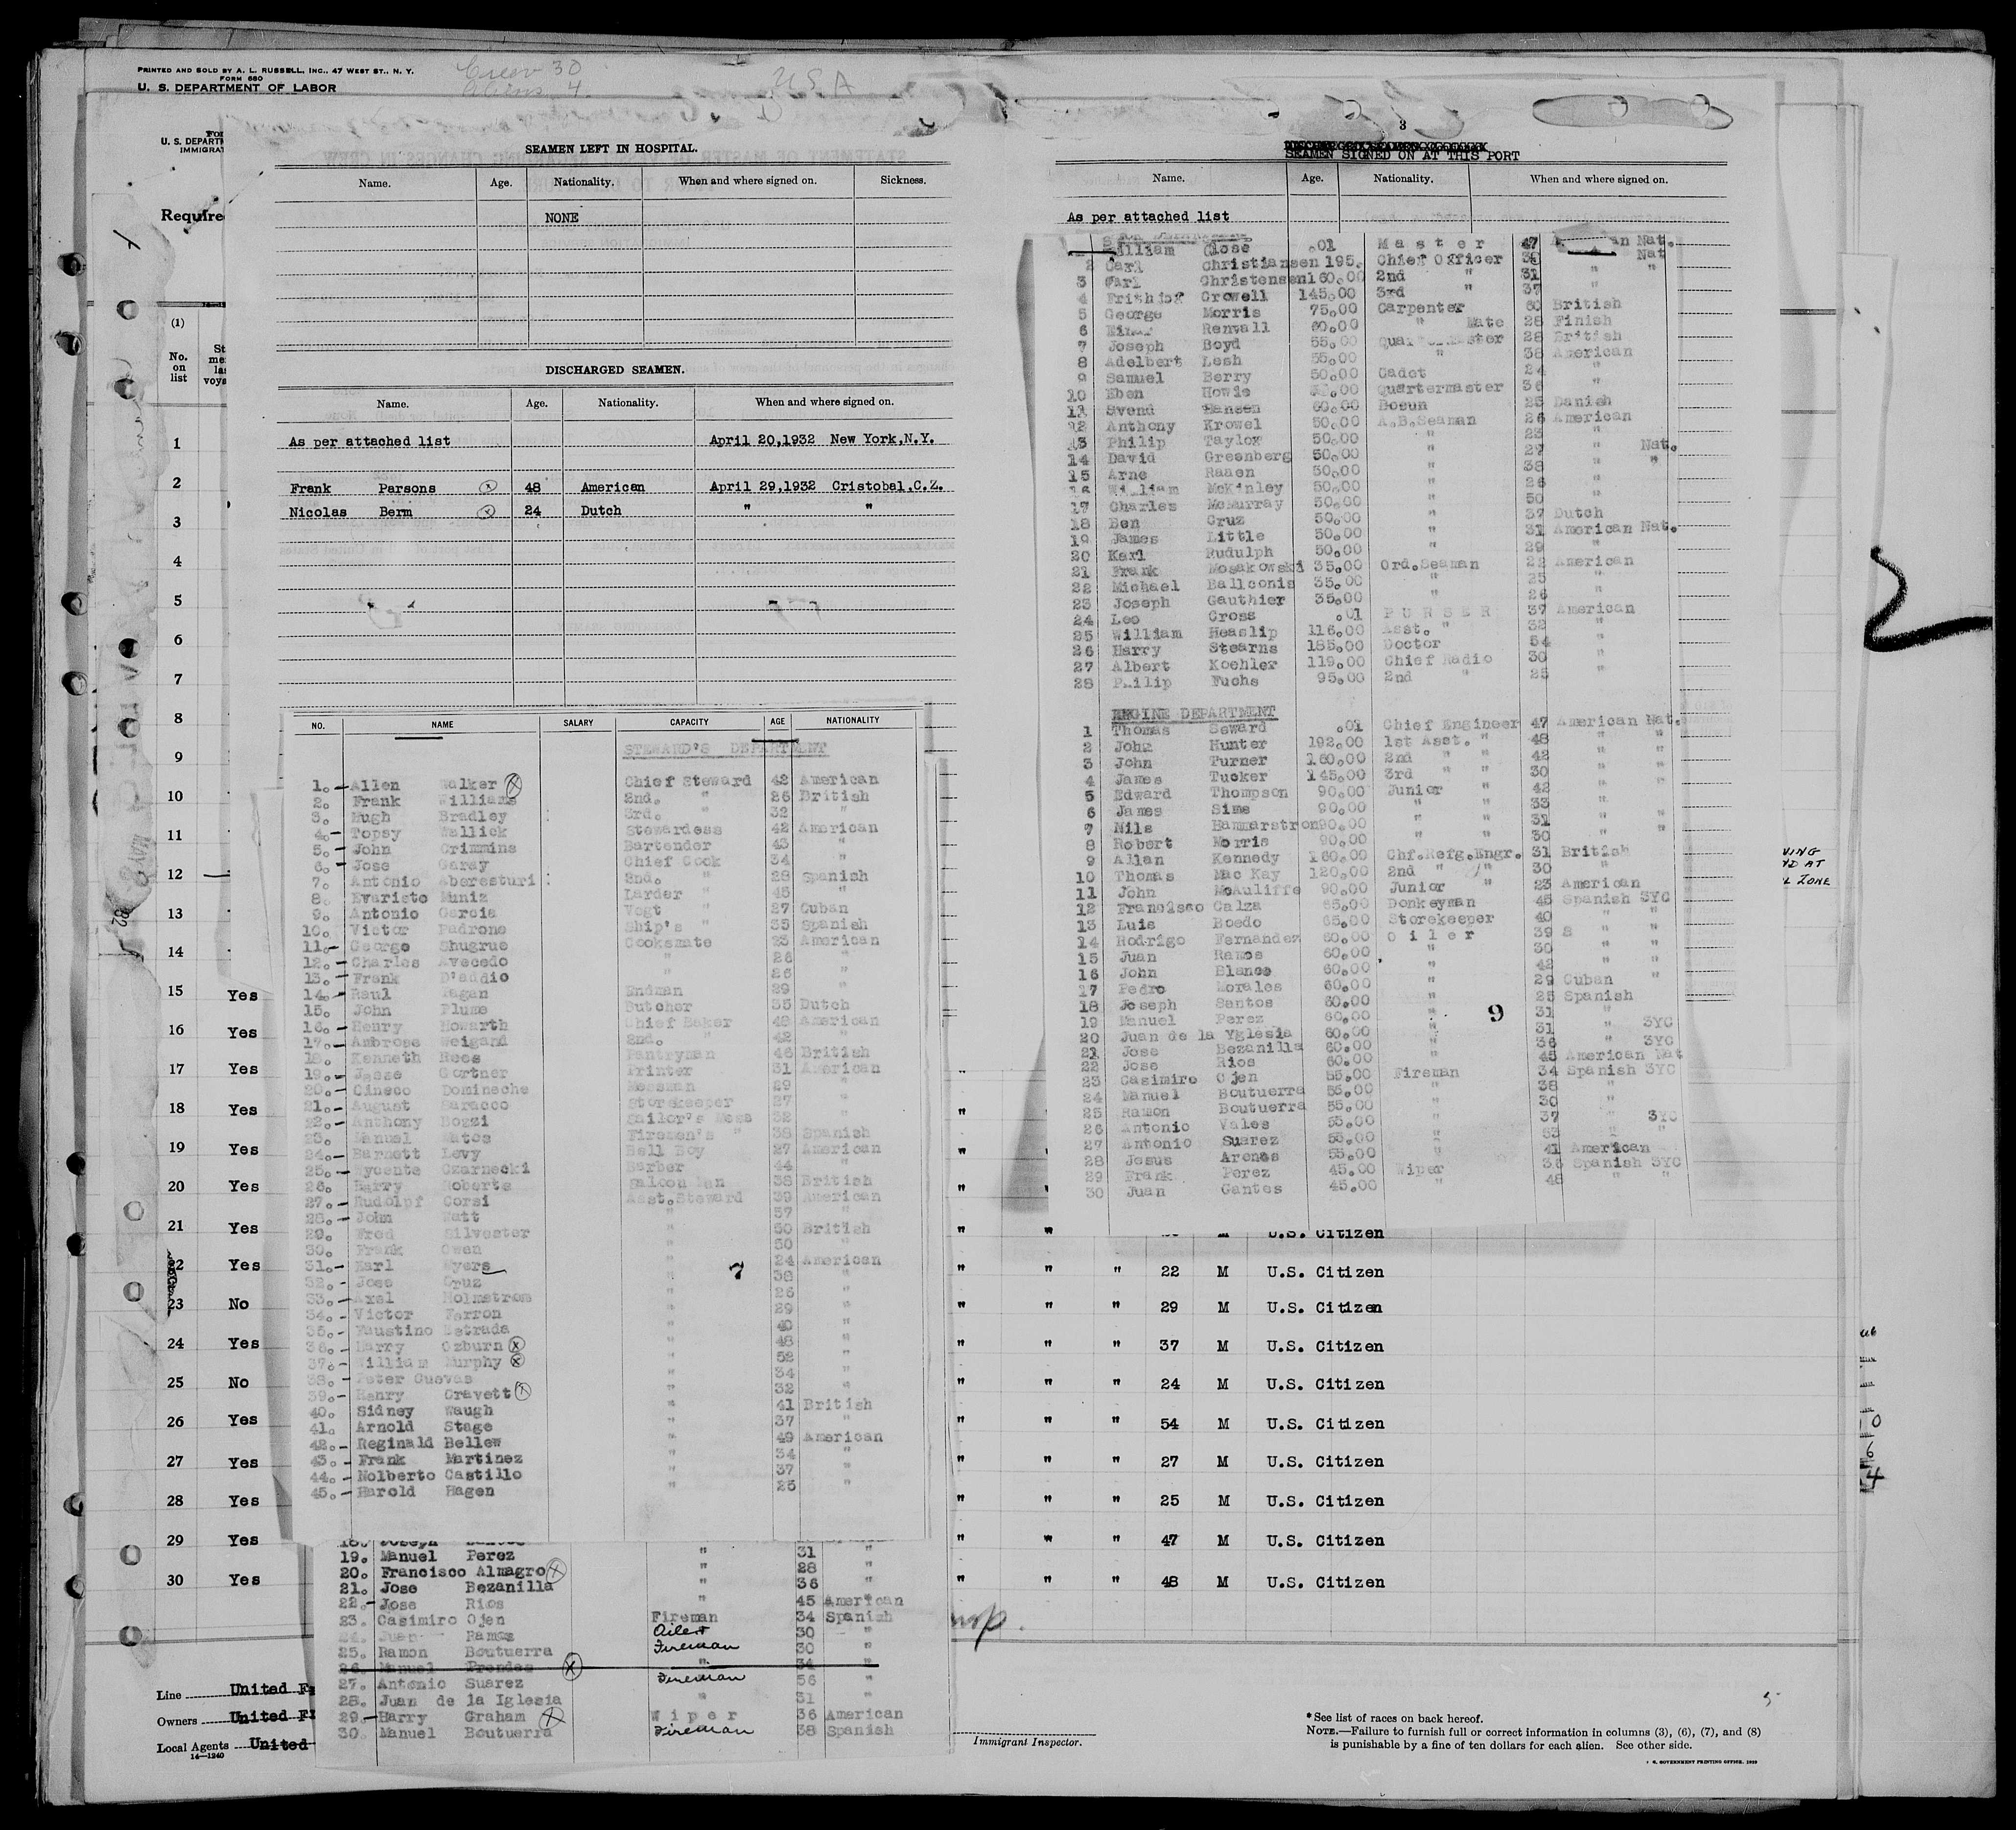 PRINTED AND SOLD BY A. L. RUSSELL, INC., 47 WEST ST., N. Y.
FORM 680
U. S. DEPARTMENT OF LABOR
Crew 30
Aliens 4
USA
U. S. DEPARTM
IMMIGRAT
Require
(1)
No. on list
1
2
3
4
5
6
7
8
9
10
11
12
13
14
15 Yes
16 Yes
17 Yes
18 Yes
19 Yes
20 Yes
21 Yes
22 Yes
23 No
24 Yes
25 No
26 Yes
27 Yes
28 Yes
29 Yes
30 Yes
Line United F
Owners United F
Local Agents United
14—1240
SEAMEN LEFT IN HOSPITAL.
Name. Age. Nationality. When and where signed on. Sickness.
NONE
DISCHARGED SEAMEN.
Name. Age. Nationality. When and where signed on.
As per attached list April 20,1932 New York,N.Y.
Frank Parsons 48 American April 29,1932 Cristobal,C.Z.
Nicolas Berm 24 Dutch " "
NO. NAME SALARY CAPACITY AGE NATIONALITY
STEWARD'S DEPARTMENT
1. Allen Walker Chief Steward 42 American
2. Frank Williams 2nd. " 26 British
3. Hugh Bradley 3rd. " 32 "
4. Topsy Wallick Stewardess 42 American
5. John Crimmins Bartender 43 "
6. Jose Garay Chief Cook 34 "
7. Antonio Aberesturi 2nd. " 28 Spanish
8. Evaristo Muniz Larder " 45 "
9. Antonio Garcia Vegt " 27 Cuban
10. Victor Padrone Ship's " 35 Spanish
11. George Shugrue Cooksmate 23 American
12. Charles Avecedo " 26 "
13. Frank D'addio " 26 "
14. Raul Pagan Endman 29 "
15. John Plume Butcher 35 Dutch
16. Henry Howarth Chief Baker 48 American
17. Ambrose Weigand 2nd. " 42 "
18. Kenneth Rees Pantryman 46 British
19. Jesse Gortner Printer 31 American
20. Cineco Domineche Messman 29 "
21. August Saracco Storekeeper 27 "
22. Anthony Bozzi Sailor's Mess 32 "
23. Manuel Matos Firemen's " 38 Spanish
24. Barnett Levy Bell Boy 27 American
25. Wycente Czarnecki Barber 44 "
26. Harry Roberts Saloon Man 38 British
27. Rudolpf Corsi Asst.Steward 39 American
28. John Watt " 57 "
29. Fred Silvester " 50 British
30. Frank Owen " 50 "
31. Earl Myers " 24 American
32. Jose Cruz " 38 "
33. Axel Holmstrom " 26 "
34. Victor Ferron " 29 "
35. Faustino Estrada " 40 "
36. Harry Ozburn " 48 "
37. William Murphy " 52 "
38. Peter Cuevas " 34 "
39. Henry Gravett " 32 "
40. Sidney Waugh " 41 British
41. Arnold Stage " 37 "
42. Reginald Bellew " 49 American
43. Frank Martinez " 34 "
44. Nolberto Castillo " 37 "
45. Harold Hagen " 25 "
7
19. Manuel Perez " 31 "
20. Francisco Almagro " 28 "
21. Jose Bezanilla " 36 "
22. Jose Rios " 45 American
23. Casimiro Ojen Fireman 34 Spanish
24. Juan Ramos Oiler 30 "
25. Ramon Boutuerra Fireman 30 "
26. Manuel Prendes " 34
27. Antonio Suarez Fireman 56 "
28. Juan de la Iglesia " 31 "
29. Harry Graham Wiper 36 American
30. Manuel Boutuerra Fireman 38 Spanish
3
SEAMEN SIGNED ON AT THIS PORT
Name. Age. Nationality. When and where signed on.
As per attached list
William Close .01 Master 47 American Nat.
2 Carl Christiansen 195. Chief Officer Nat
3 Carl Christensen 160.00 2nd " 31 " "
4 Frithjof Crowell 145.00 3rd " 37 "
5 George Morris 75.00 Carpenter 60 British
6 Einar Renvall 60.00 " Mate 28 Finish
7 Joseph Boyd 55.00 Quartermaster 28 British
8 Adelbert Lesh 55.00 " 38 American
9 Samuel Berry 50.00 Cadet 24 "
10 Eben Howie Quartermaster 36 "
11 Svend Hansen 60.00 Bosun 25 Danish
12 Anthony Krowel 50.00 A.B.Seaman 26 American
13 Philip Taylor 50.00 " 23 "
14 David Greenberg 50.00 " 27 " Nat.
15 Arne Raaen 50.00 " 38 " "
16 William McKinley 50.00 " 26 "
17 Charles McMurray 50.00 " 50 "
18 Ben Cruz 50.00 " 37 Dutch
19 James Little 50.00 " 31 American Nat.
20 Karl Rudulph 50.00 " 29 "
21 Frank Mosakowski 35.00 Ord.Seaman 22 American
22 Michael Ballconis 35.00 " 25 "
23 Joseph Gauthier 35.00 " 26 "
24 Leo Cross .01 PURSER 37 American
25 William Heaslip 116.00 Asst. " 32 "
26 Harry Stearns 185.00 Doctor 54 "
27 Albert Koehler 119.00 Chief Radio 30 "
28 Philip Fuchs 95.00 2nd " 25 "
ENGINE DEPARTMENT
1 Thomas Seward .01 Chief Engineer 47 American Nat.
2 John Hunter 192.00 1st Asst. " 48 " "
3 John Turner 160.00 2nd " " 42 " "
4 James Tucker 145.00 3rd " " 30 " "
5 Edward Thompson 90.00 Junior " 42 " "
6 James Sims 90.00 " " 33 "
7 Nils Hammarstron 90.00 " " 31 " "
8 Robert Morris 90.00 " " 30 "
9 Allan Kennedy 160.00 Chf.Refg.Engr. 31 British
10 Thomas Mac Kay 120.00 2nd " " 30 "
11 John McAuliffe 90.00 Junior " 23 American
12 Francisco Calza 65.00 Donkeyman 45 Spanish 3YC
13 Luis Boedo 65.00 Storekeeper 40 " "
14 Rodrigo Fernandez 60.00 Oiler 39 S " "
15 Juan Ramos 60.00 " 30 " "
16 John Blance 60.00 " 42 " "
17 Pedro Morales 60.00 " 29 Cuban "
18 Joseph Santos 60.00 " 25 Spanish
19 Manuel Perez 60.00 " 31 "
20 Juan de la Yglesia 60.00 " 31 " 3YC
21 Jose Bezanilla 60.00 " 36 " 3YC
22 Jose Rios 60.00 " 45 American Nat
23 Casimiro Ojen 55.00 Fireman 34 Spanish 3YC
24 Manuel Boutuerra 55.00 " 38 "
25 Ramon Boutuerra 55.00 " 30 "
26 Antonio Vales 55.00 " 37 " 3YC
27 Antonio Suarez 55.00 " 53 " "
28 Jesus Arenas 55.00 " 41 American
29 Frank Perez 45.00 Wiper 36 Spanish 3YC
30 Juan Gantes 45.00 " 48 " "
9
U.S. Citizen
" " " 22 M U.S. Citizen
" " " 29 M U.S. Citizen
" " " 37 M U.S. Citizen
" " " 24 M U.S. Citizen
" " " 54 M U.S. Citizen
" " " 27 M U.S. Citizen
" " " 25 M U.S. Citizen
" " " 47 M U.S. Citizen
" " " 48 M U.S. Citizen
Immigrant Inspector.
*See list of races on back hereof.
NOTE.—Failure to furnish full or correct information in columns (3), (6), (7), and (8)
is punishable by a fine of ten dollars for each alien. See other side.
ZONE